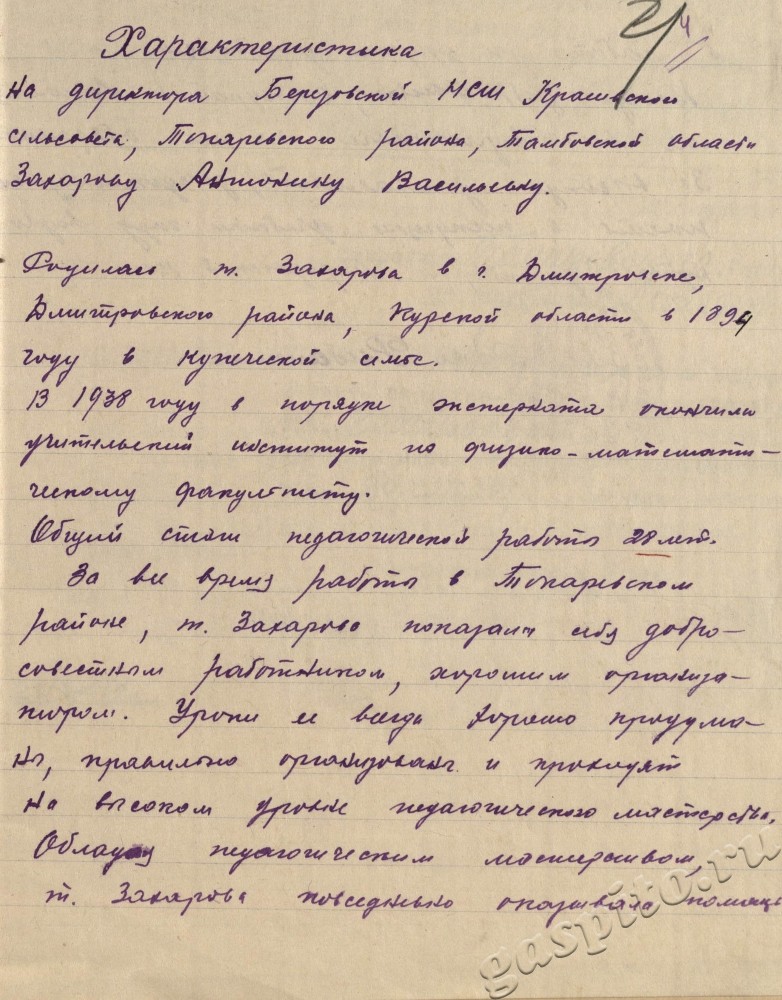 2/4
Характеристика
на директора Березовской НСШ Красивского
сельсовета, Токаревского района, Тамбовской области
Захарову Антонину Васильевну.
Родилась т. Захарова в г. Дмитровске,
Дмитровского района, Курской области в 1894
году в купеческой семье.
В 1938 году в порядке эксперната окончила
учительский институт по физико-математи-
ческому факультету.
Общий стаж педагогической работы 28 лет.
За все время работы в Токаревском
районе, т. Захарова показала себя добро-
совестным работником, хорошим организа-
тором. Уроки ее всегда хорошо продума-
ны, правильно организованы и проходят
на высоком уровне педагогического мастерства.
Обладая педагогическим мастерством
т. Захарова повседневно оказывала помощь
gaspito.ru